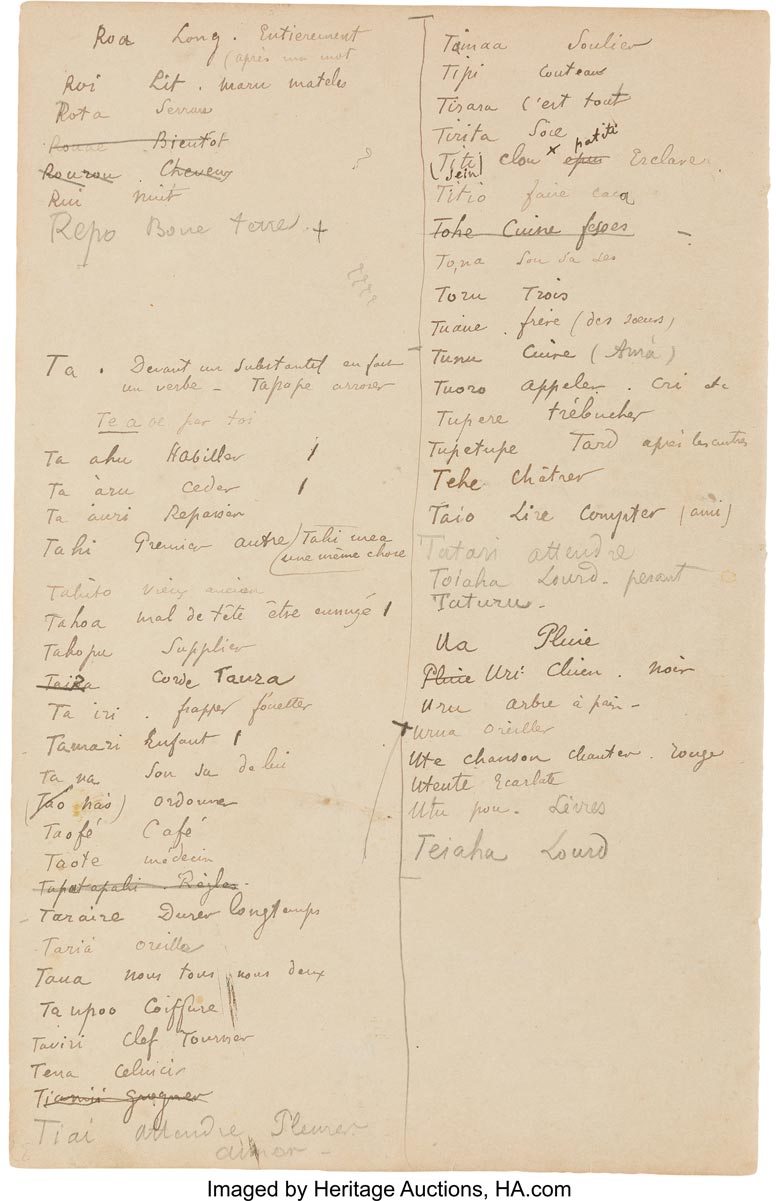 Roa Long. Entierement
(après un mot
Roi Lit. maru matelas
Rota Serrure
Rouae Bientot
Rourou Cheveux ?
Rui nuit
Repo Boue terre. +
Ta. Devant un substantif en fait
un verbe - Tapape arroser
Te a oe par toi
Ta ahu Habiller /
Ta àru Ceder /
Ta auri Repasser
Tahi Premier autre (Tahi mea
une même chose
Tahito vieux ancien
Tahoa mal de tête être ennuyé /
Tahopu Supplier
Corde Taura
Ta iri. frapper fouetter
Tamari Enfant /
Ta na Son sa de lui
(Tao nas) ordonner
Taofé Café
Taote médecin
Tupatapahi. Règles.
Taraire Durer longtemps
Tariá oreille
Taua nous tous nous deux
Taupoo Coiffure
Taviri Clef Tourner
Tena Celuici
Tiamü grogner
Tiai attendre Pleurer
aimer -
Tamaa Soulier
Tipi Couteau
Tirara C'est tout
Tirita Soie
Titi clou x patiti Esclave.
(Sein)
Titio faire caca
Tohe Cuire fesses -
Tona Son sa ses
Toru Trois
Tuane. frère (des sœurs)
Tunu Cuire (Amà)
Tuoro appeler. Cri etc
Tupere trébucher
Tupetupe Tard après les autres
Tehe Châtrer
Taio Lire Compter (ami)
Tatari attendre
Toiaha Lourd - pesant
Taturu -
Ua Pluie
Pluie Uri Chien. noir
Uru arbre à pain -
Urua oreiller
Ute chanson chanter. rouge
Uteute Ecarlate
Utu pou. Lèvres
Teiaha Lourd
Imaged by Heritage Auctions, HA.com